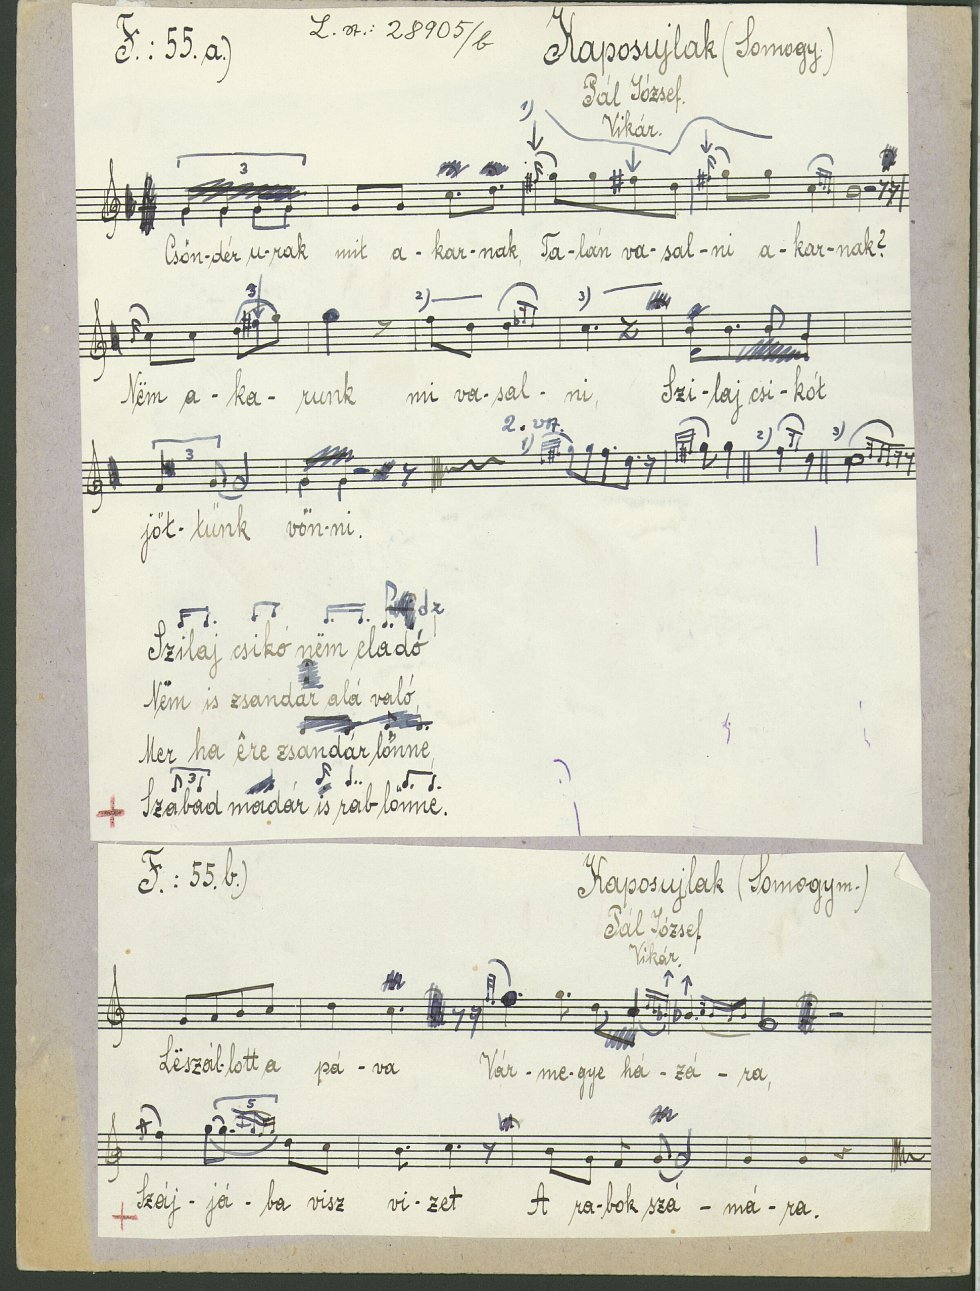 F.: 55. a.)
L. sz.: 28905/b
Kaposujlak (Somogy.)
Pál József.
Vikár.
1)
3
Csön-dér u-rak mit a-kar-nak, Ta-lán va-sal-ni a-kar-nak?
3
2)
3)
Nëm a-ka-runk mi va-sal-ni, Szi-laj csi-kót
3
2. vsz.
1)
2)
3)
jöt-tünk vön-ni.
Szilaj csikó nëm eladó
Nëm is zsandár alá való,
Mer ha êre zsandár lőnne,
3
Szabad madár is rab lőnne.
F.: 55. b.)
Kaposujlak (Somogym.)
Pál József
Vikár.
Lëszál-lott a pá-va Vár-me-gye há-zá-ra,
5
Száj-já-ba visz vi-zet A ra-bok szá-má-ra.